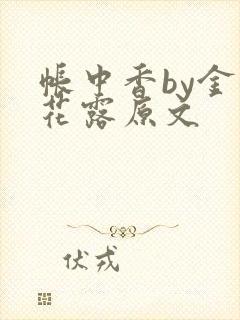 帐中香by金
花露原文
伏戎